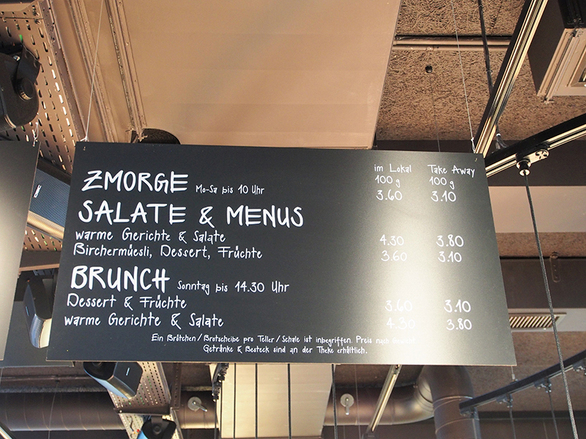 im Lokal Take Away
100 g 100 g
ZMORGE Mo-Sa bis 10 Uhr 3.60 3.10
SALATE & MENUS
warme Gerichte & Salate 4.30 3.80
Birchermüesli, Dessert, Früchte 3.60 3.10
BRUNCH Sonntag bis 14.30 Uhr
Dessert & Früchte 3.60 3.10
warme Gerichte & Salate 4.30 3.80
Ein Brötchen / Brotscheibe pro Teller / Schale ist inbegriffen. Preis nach
Getränke & Besteck sind an der Theke erhältlich.